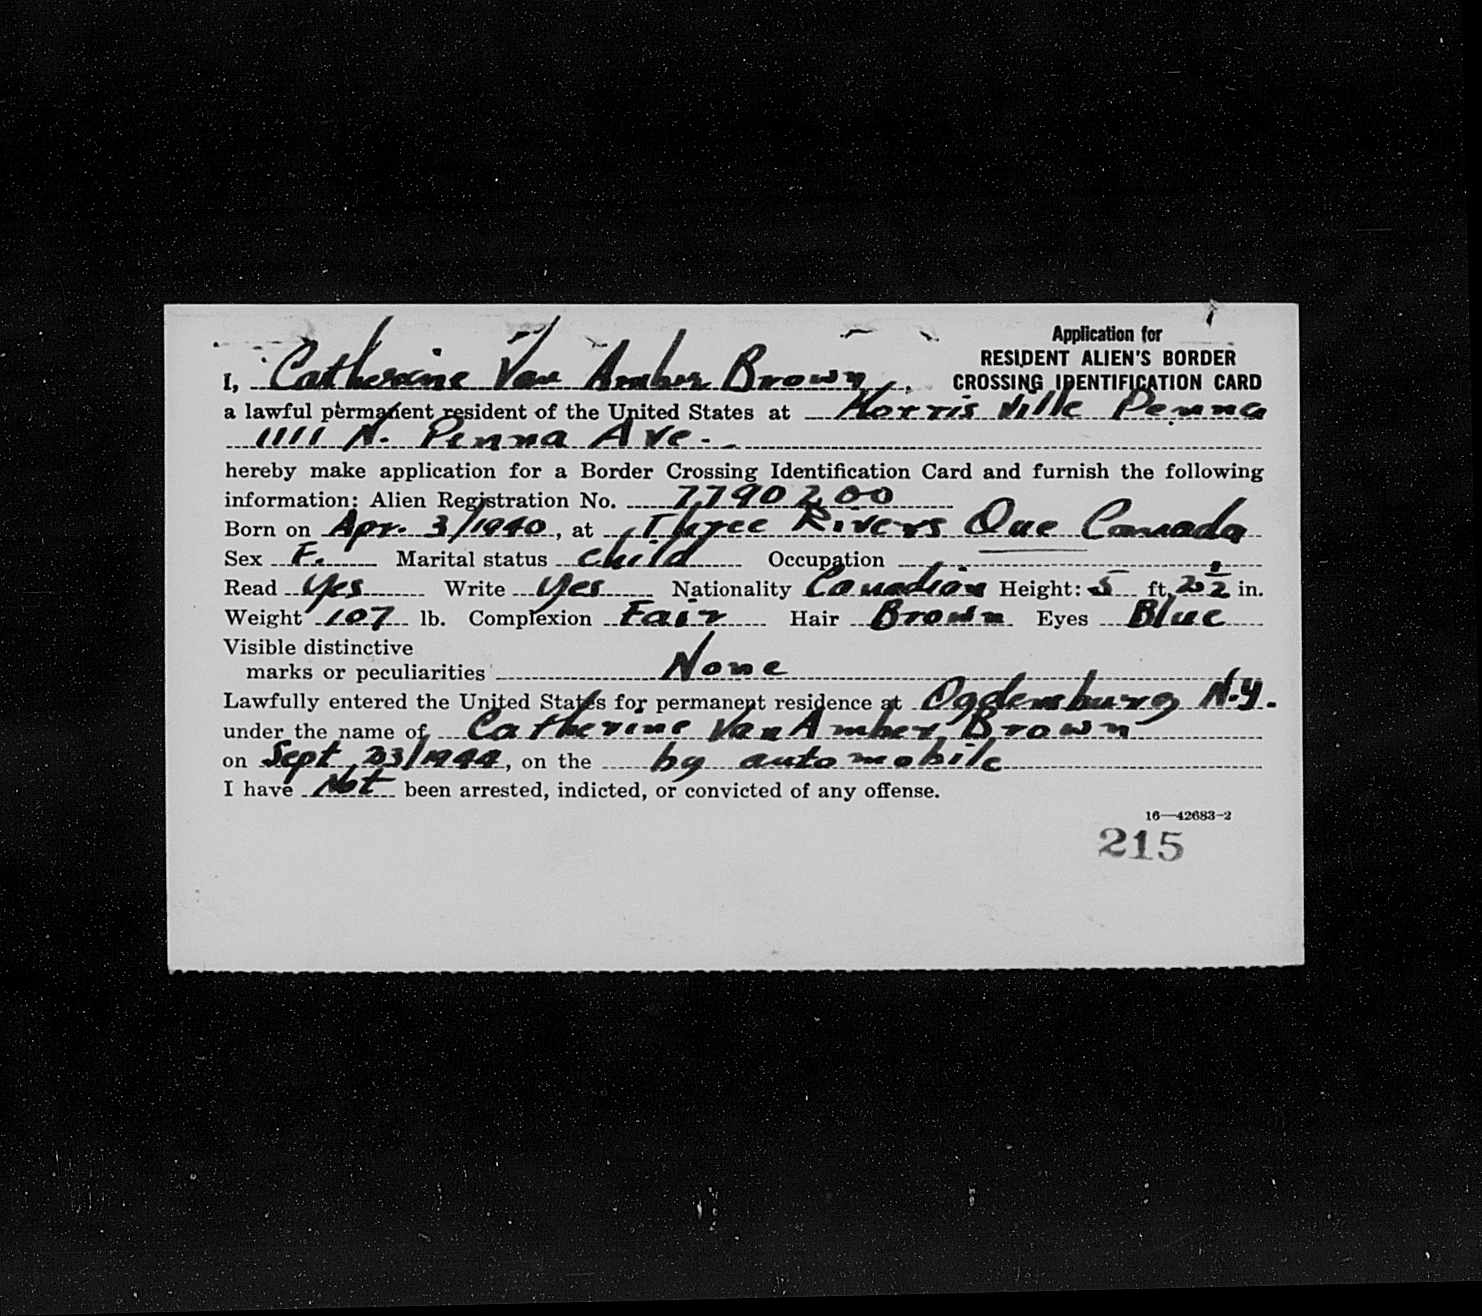 Application for
RESIDENT ALIEN'S BORDER
CROSSING IDENTIFICATION CARD
I, Catherine Van Amber Brown,
a lawful permanent resident of the United States at Morris Ville Penna
1111 N. Penna Ave.
hereby make application for a Border Crossing Identification Card and furnish the following
information: Alien Registration No. 7790200
Born on Apr. 3/1940, at Three Rivers Que Canada
Sex F. Marital status child Occupation
Read Yes Write Yes Nationality Canadian Height: 5 ft. 2 1/2 in.
Weight 107 lb. Complexion Fair Hair Brown Eyes Blue
Visible distinctive
marks or peculiarities None
Lawfully entered the United States for permanent residence at Ogdensburg N.Y.
under the name of Catherine Van Amber Brown
on Sept 23/1944, on the by automobile
I have Not been arrested, indicted, or convicted of any offense.
16—42683-2
215